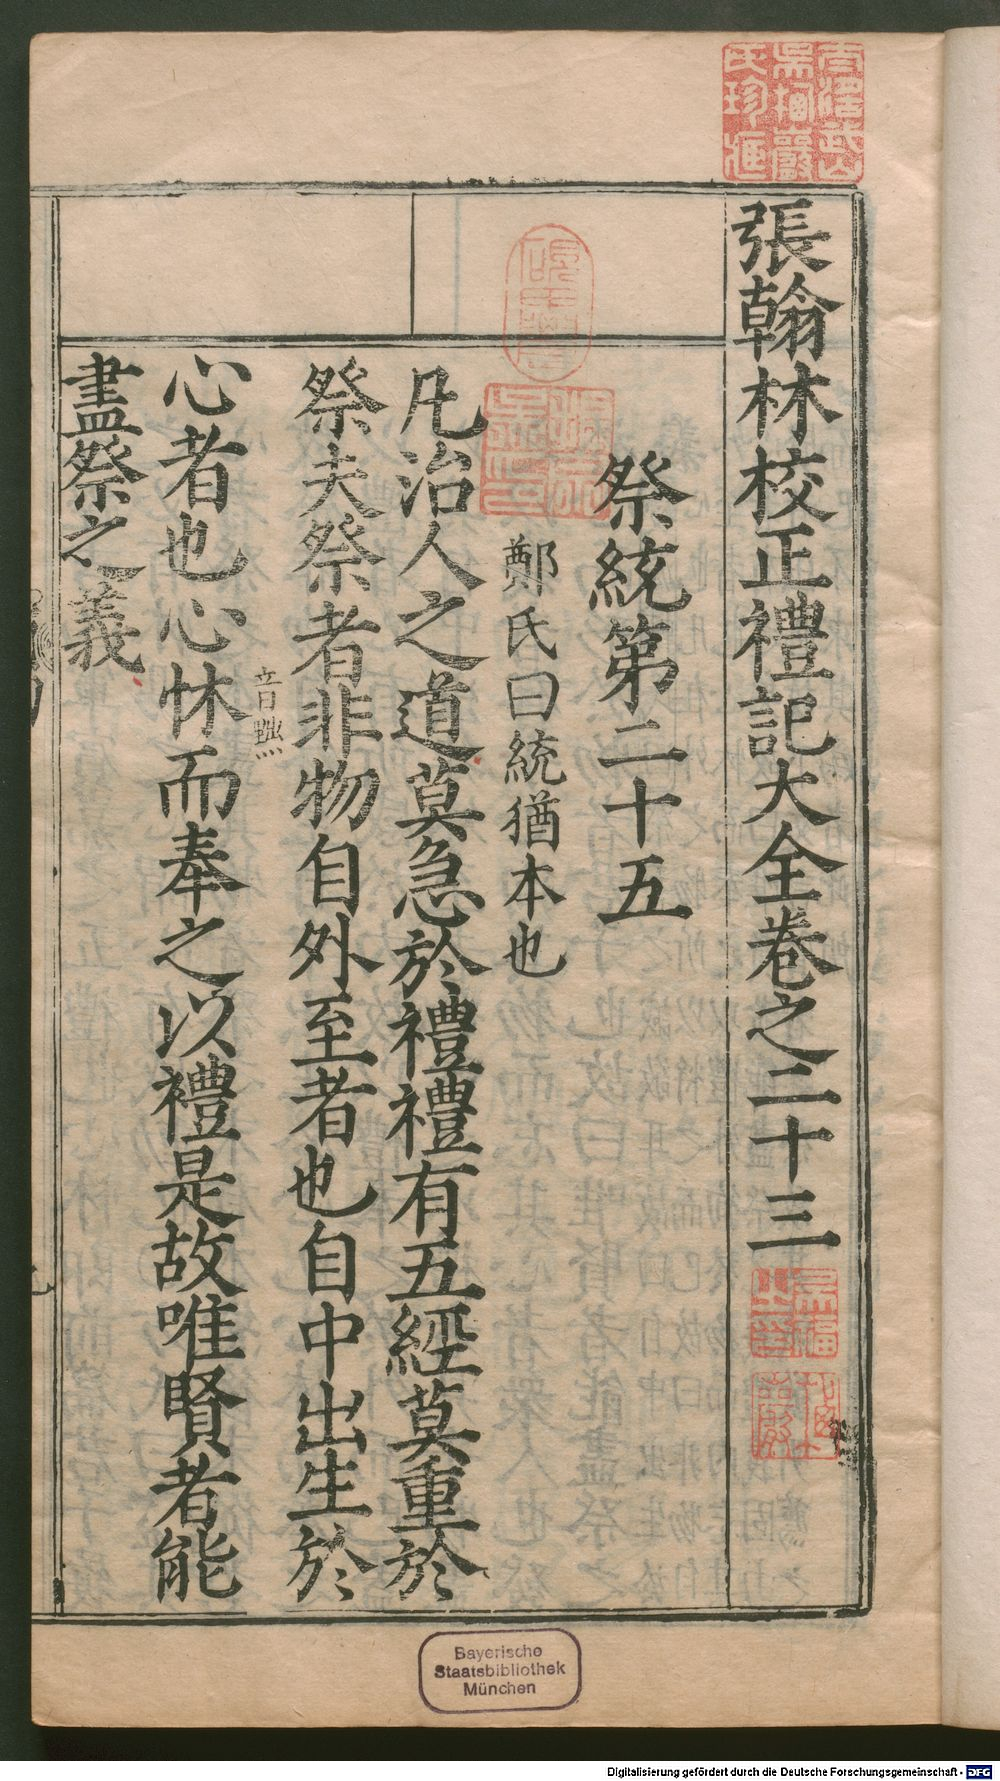 張翰林校正禮記大全卷之二十三
祭統第二十五
鄭氏曰統猶本也
凡治人之道莫急於禮禮有五經莫重於
祭夫祭者非物自外至者也自中出生於
音黜
心者也心怵而奉之以禮是故唯賢者能
盡祭之義
Bayerische
Staatsbibliothek
München
Digitalisierung gefördert durch die Deutsche Forschungsgemeinschaft - DFG